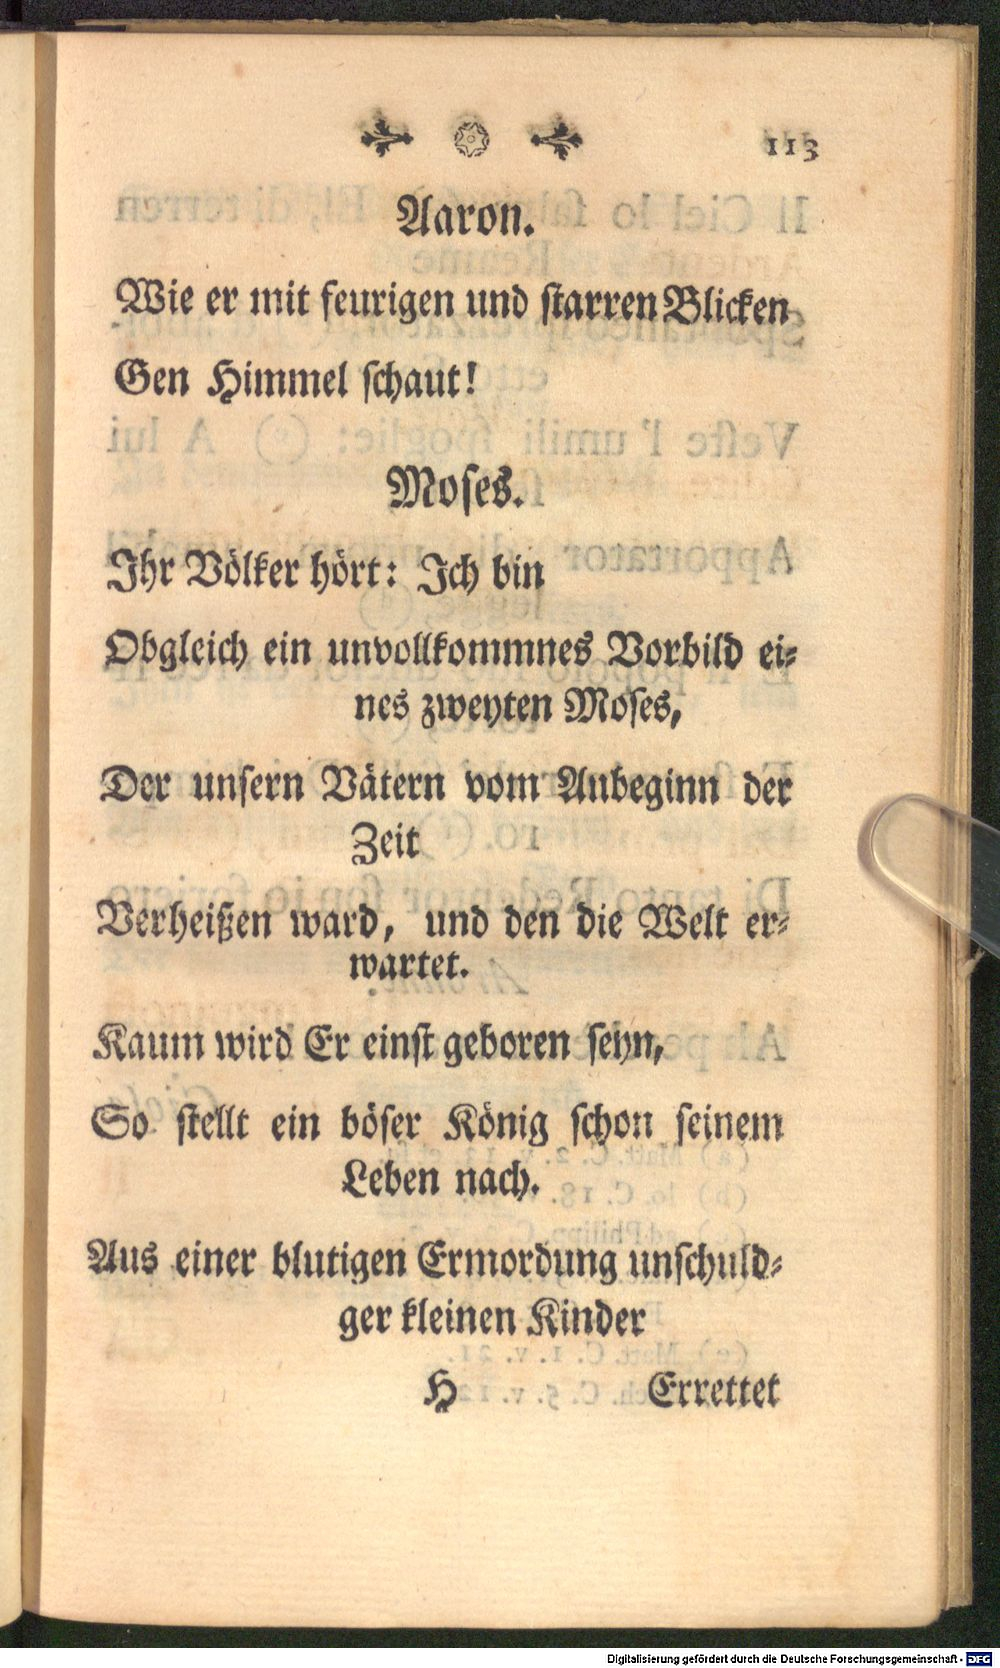 113
Aaron.
Wie er mit feurigen und starren Blicken
Gen Himmel schaut!
Moses.
Ihr Völker hört: Ich bin
Obgleich ein unvollkommnes Vorbild ei-
nes zweyten Moses,
Der unsern Vätern vom Anbeginn der
Zeit
Verheißen ward, und den die Welt er-
wartet.
Kaum wird Er einst geboren seyn,
So stellt ein böser König schon seinem
Leben nach.
Aus einer blutigen Ermordung unschuld-
ger kleinen Kinder
H Errettet
Digitalisierung gefördert durch die Deutsche Forschungsgemeinschaft - DFG